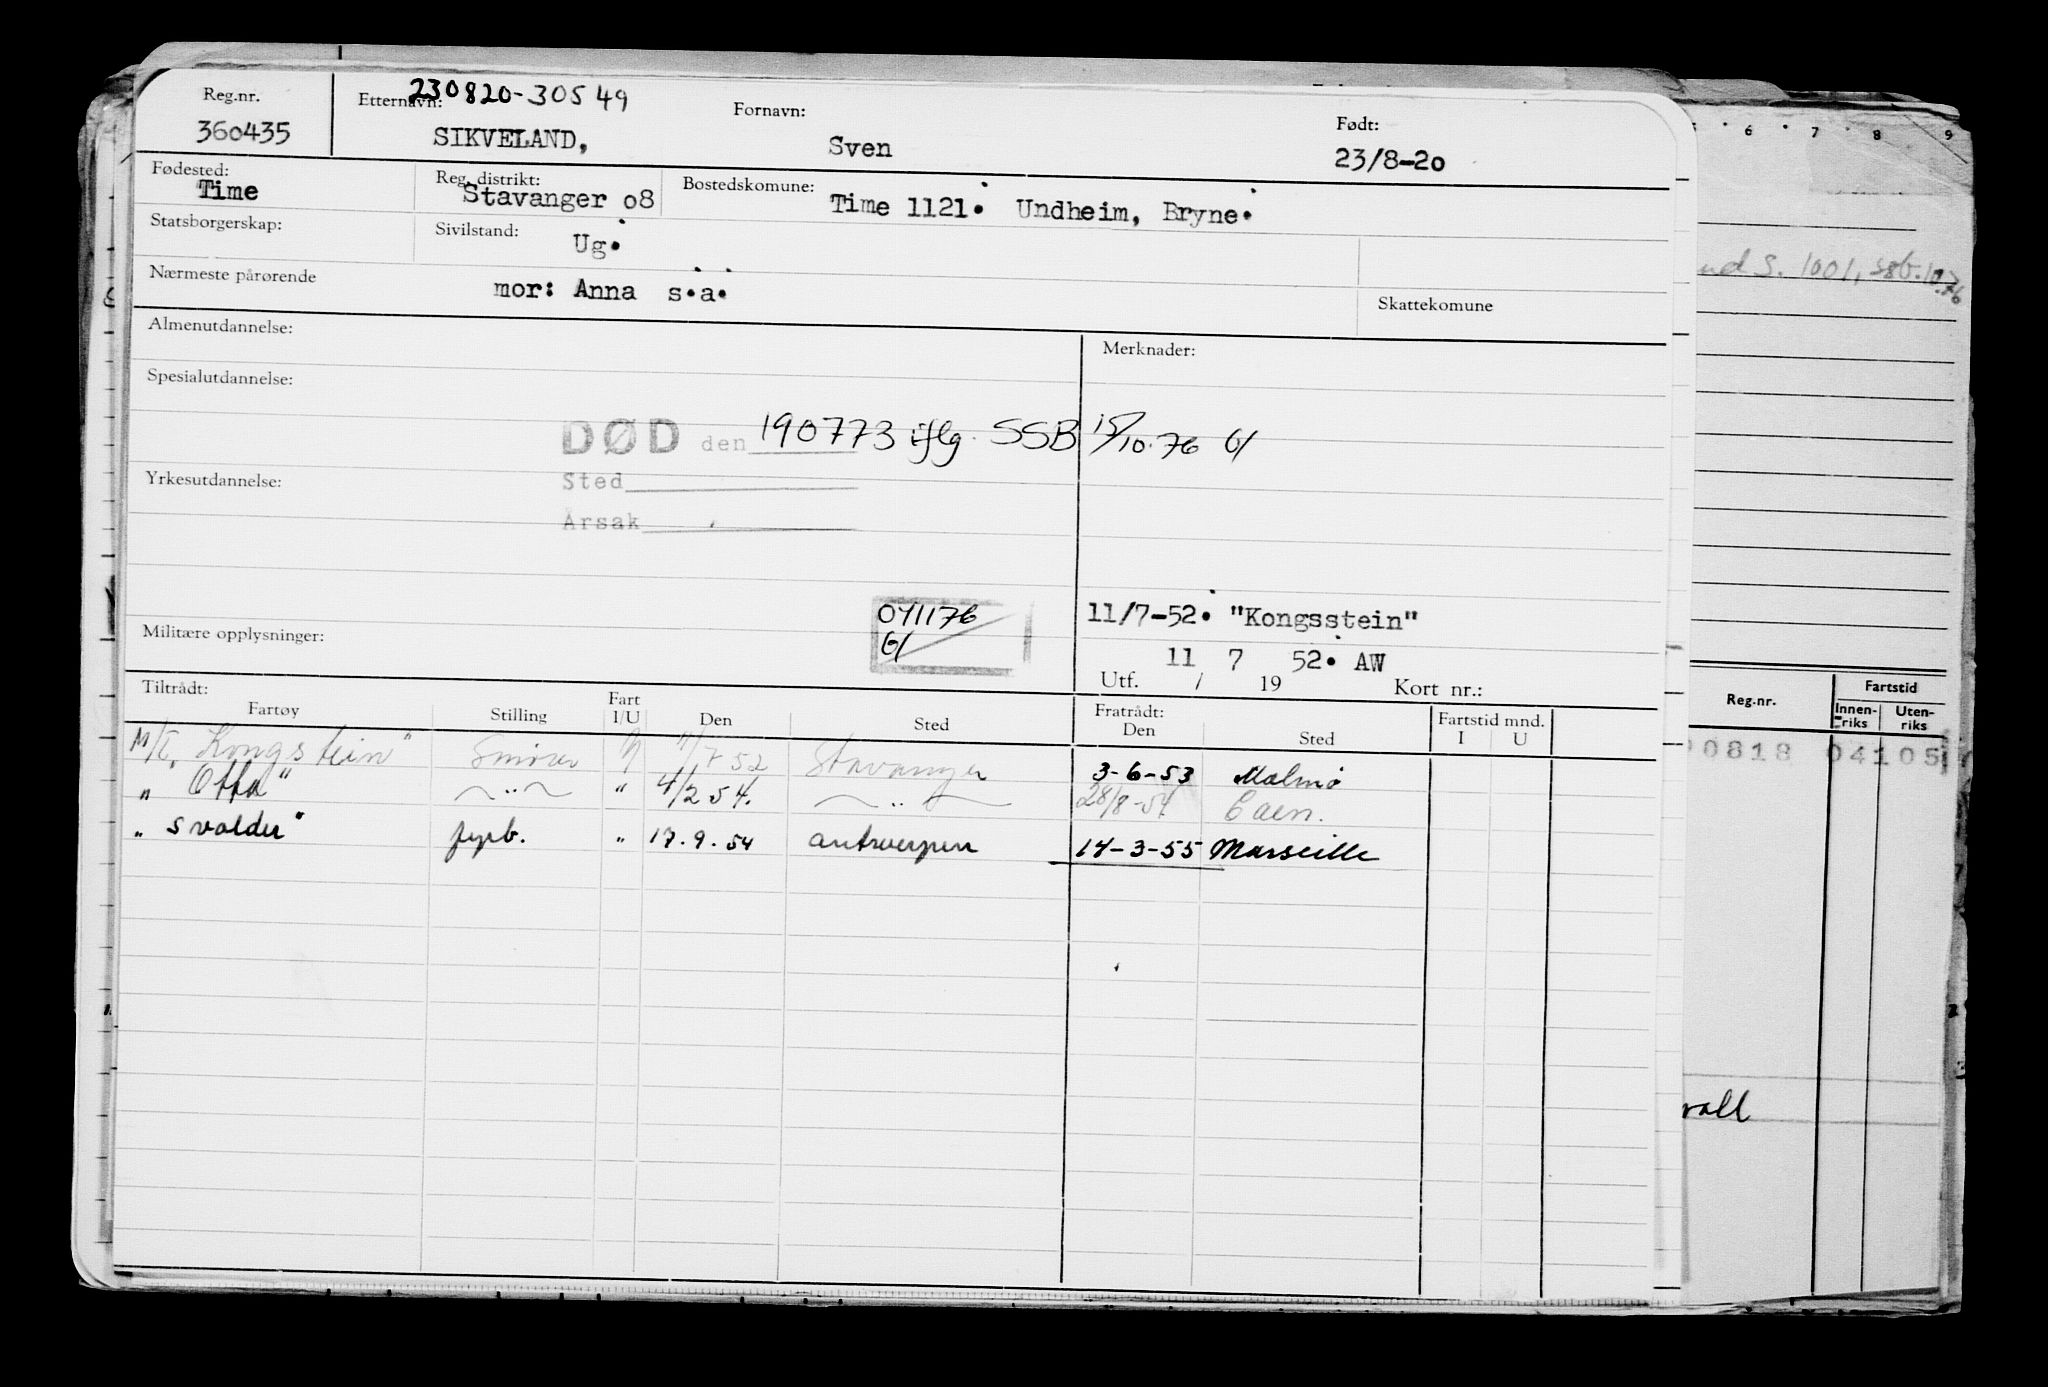 230820-30549
Reg.nr. Etternavn: Fornavn: Født:
360435 SIKVELAND, Sven 23/8-20
Fødested: Reg. distrikt: Bostedskomune:
Time Stavanger o8 Time 1121. Undheim, Bryne.
Statsborgerskap: Sivilstand: Ug.
Nærmeste pårørende mor: Anna s.a. Skattekomune
Almenutdannelse: Merknader:
Spesialutdannelse:
DØD den 190773 iflg. SSB 15/10.76
Yrkesutdannelse: Sted
Årsak
041176
11/7-52. "Kongsstein"
Militære opplysninger:
11 7 52. AW
Utf. / 19 Kort nr.:
Tiltrådt: Fratrådt:
Fartøy Stilling Fart I/U Den Sted Den Sted Fartstid mnd. I U
M/T "Kongstein" Smører U 11/7 52 Stavanger 3-6-53 Malmø
" Otta" " " 4/2 54. " 28/8-54 Caen.
" Svolder" fyrb. " 17.9.54 Antwerpen 14-3-55 Marseille
5 6 7 8 9
S. 1001, SSB. 10.76
Reg.nr. Fartstid
Innenriks Utenriks
0818 04105
vall